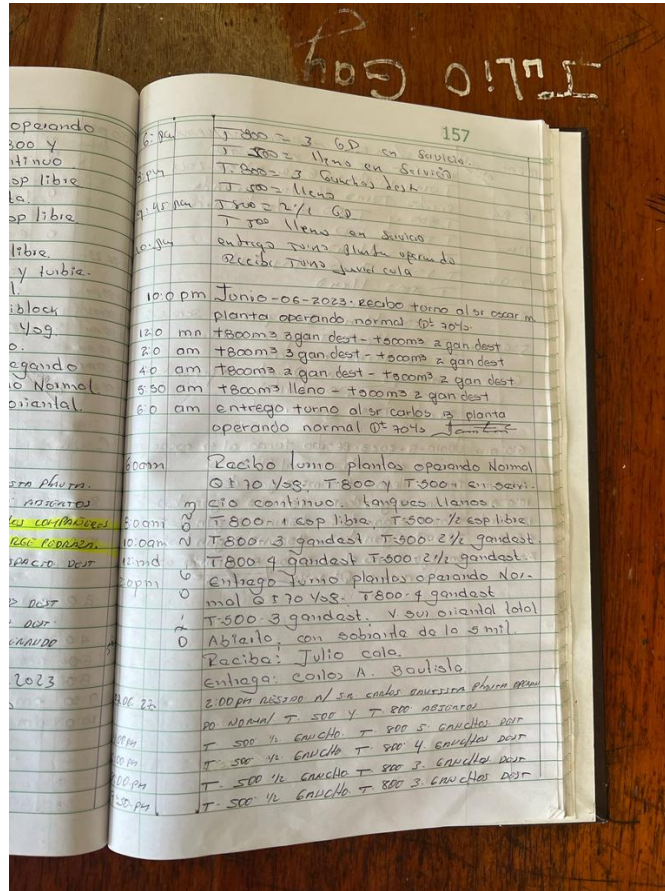 Julio Cag
operando
800 Y
ntinuo
sp libre
ta.
sp libre.
libre.
y turbia.
l.
iblock
Y/sg.
o.
egando
o Normal
oriental.
STA PLANTA.
ABIERTOS
LOS COMPAÑEROS
RGE PEDRAZA.
SPACIO DEST
DEST
DEST
GRANDO
2023
157
6: pm T-800 = 3 GD en servicio.
T-500 = lleno en Servicio
8: pm T-800 = 3 Ganchos dest
T-500 = lleno
9:45 pm T800 = 2½ GD
T 500 lleno en servicio
10: pm entrego turno planta operando
Recibe Turno Javier cala
10:0 pm Junio-06-2023. Recibo turno al sr oscar m
planta operando normal Q± 70 l/s.
12:0 mn T800m3 3 gan dest - T500m3 2 gan dest
2:0 am T800m3 3 gan dest - T500m3 2 gan dest
4:0 am T800m3 2 gan dest - T500m3 2 gan dest
5:30 am T800m3 lleno - T500m3 2 gan dest
6:0 am entrego turno al sr carlos B planta
operando normal Q± 70 l/s
6:00am Recibo turno plantas operando Normal
Q ± 70 l/sg. T-800 y T-500 en servi-
cio continuo. tanques llenos.
8:00am T-800-1 esp libre. T-500-½ esp libre
10:00am T-800-3 gandest T-500-2½ gandest.
12:md T-800-4 gandest T-500-2½ gandest.
2:0pm Entrego turno plantas operando Nor-
mal Q ± 70 l/sg. T-800-4 gandest
T-500-3 gandest. V sur oriental total
Abierto, con sobrante de la 5 mil.
Recibe: Julio cala.
Entrega: carlos A. Bautista.
06.23 2:00 PM RESIBO A/ SR CARLOS BAUTISTA PLANTA OPERAN
DO NORMAL T 500 Y T 800 ABIERTOS
:00PM T 500 ½ GANCHO T 800 5. GANCHOS DEST
:00 PM T- 500 ½ GANCHO T- 800 4. GANCHOS DEST
:00 PM T- 500 ½ GANCHO T- 800 3. GANCHOS DEST
:50 PM T- 500 ½ GANCHO T 800 3. GANCHOS DEST